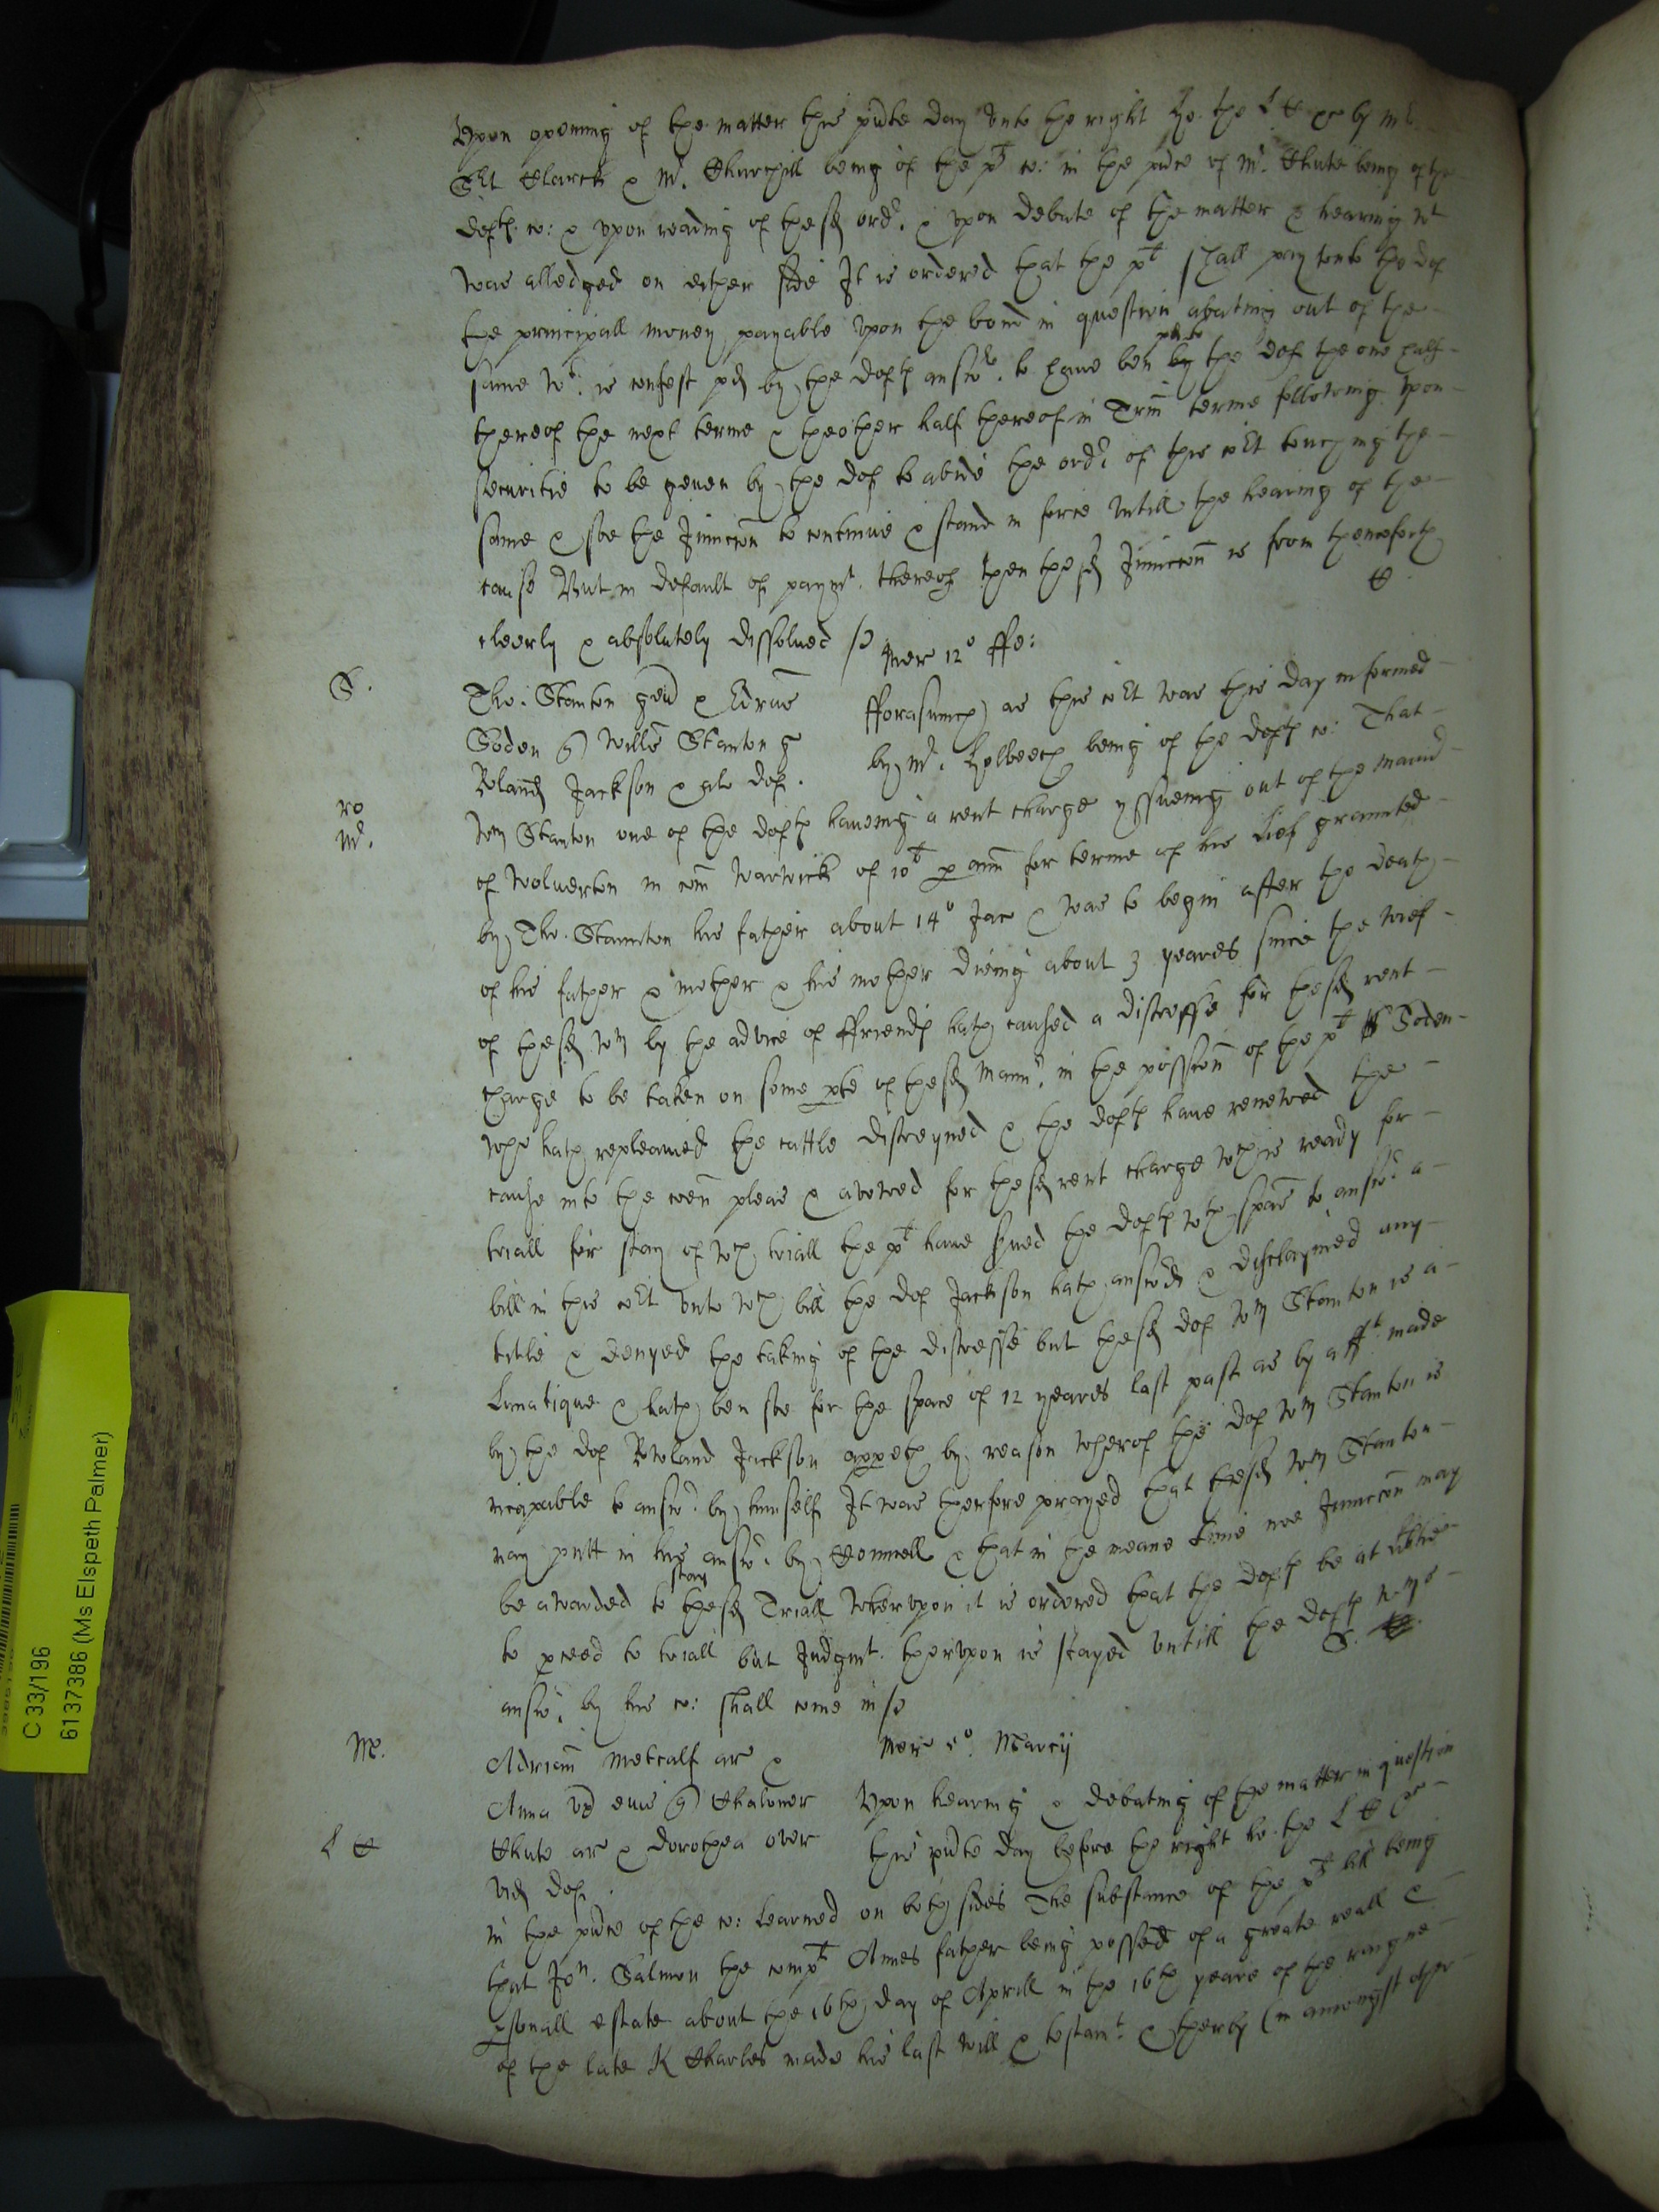 Upon opening of the matter this pñte day unto the right ho. the L C &c by Mr
Srt Clarck & Mr. Churchill being of the plt co: in the pñce of Mr. Chute being of the
deftes co: & upon reading of the sd ordr. & upon debate of the matter & hearing wt
was alledged on either side It is ordered that the plt shall pay unto the def
the principall money payable upon the bond in question abating out of the
same wch. is confest pd by the deftes answr. to have ben by the def the one half
thereof the next terme & the other half thereof in Trin terme following upon
securitie to be geven by the def to abide the ordr of this cort touching the
same & soe the Iniuccon to continue & stand in force untill the hearing of the
cause But in default of paymt. thereof then the sd Iniuccon is from thenceforth
cleerly & absolutely dissolved
C.
Mer 12o ffe:
S.
Tho: Stanton gen & Adrus
Soden qu Willm Stanton g
Roland Jackson & alv def.
fforasmuch as this cort was this day informed
by Mr. Holbeech being of the deftes co: That
ro
Mr.
Wm Stanton one of the deftes haveing a rent charge yssueing out of the mannr
of Wolverton in com Warwick of 10l p ann for terme of his lief graunted
by Tho. Staunton his father about 14o Jac & was to begin after the death
of his father & mother & his mother dieing about 3 yeares since the wief
of the sd Wm by the advice of ffriendes hath caused a distresse for the sd rent
charge to be taken on some pte of the sd mannr. in the possion of the plt Soden
who hath repleavied the cattle distreyned & the deftes have removed the
cause into the coen pleas & avowed for the sd rent charge wch is ready for
triall for stay of wch triall the plt have sued the deftes wth spas to answr a
bill in this cort unto wch bill the def Jackson hath answrd & disclaymed any
title & denyed the taking of the distresse but the sd def Wm Stanton is a
Lunatique & hath ben soe for the space of 12 yeares last past as by afft. made
by the def Rowland Jackson appeth by reason wherof the def Wm Stanton is
incapable to answr. by himself It was therfore prayed that the sd Wm Stanton
may putt in his answr. by Counsell & that in the meane time noe Iniuccon may
be awarded to stay the sd Triall Wherupon it is ordered that the deftes be at libtie
to pceed to triall but Judgmt. therupon is stayed untill the deftes Wms
answr. by his co: shall come in
S.
Mer o. Marcij
Me.
Adrian Metcalf ar &
Anna ux eius qu Chaloner
L C
Chute ar & Dorothea over
vid def
Upon hearing & debating of the matter in question
this pñte day before the right ho. the L C &c
in the pñce of the co: learned on both sides The substance of the plts bill being
that Jon. Salmon the complt Annes father being possed of a greate reall &
psonall estate about the 16th day of Aprill in the 16th yeare of the raigne
of the late K Charles made his last will & testamt. & therby (in amongst other